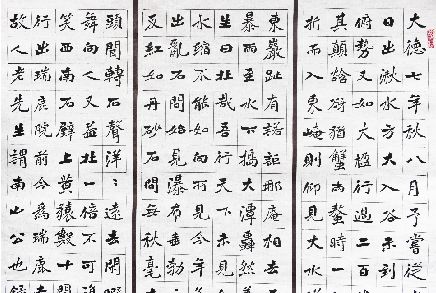 大德七年秋八月予嘗從
日出湫水方大入谷未到
俯勢又如大楹行過二百
其顛谽谺猶蟹兩螯時一
折而入東崦則仰見大水
東巖趾有諾詎那庵相去
暴雨至水下搗大潭
生曰壯哉吾行天下未見
水縮不能如向所見今年
出亂石間始見瀑布垂勃
反紅如丹砂石間無秋毫
頭聞轉石聲洋洋遠去閑暇
舞向人又益壯一倍不可
笑西南石壁上黃猿數十
行出瑞鹿院前今為瑞鹿
故人老先生謂南山公也